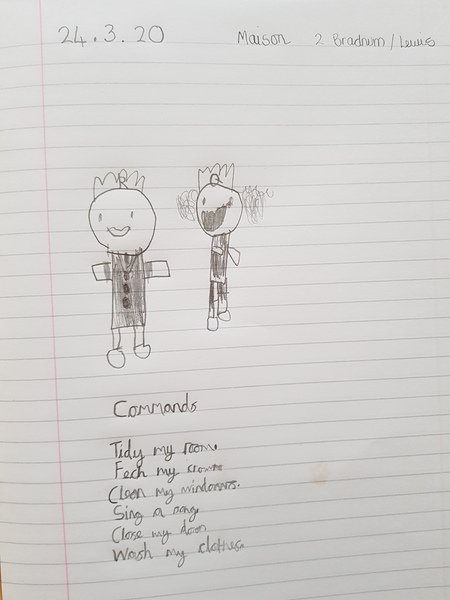 24.3.20 Maison 2 Bradnum/Lewis
Commands
Tidy my room.
Fech my crown
Clean my windowws.
Sing a song
Close my door
Wash my clothes.